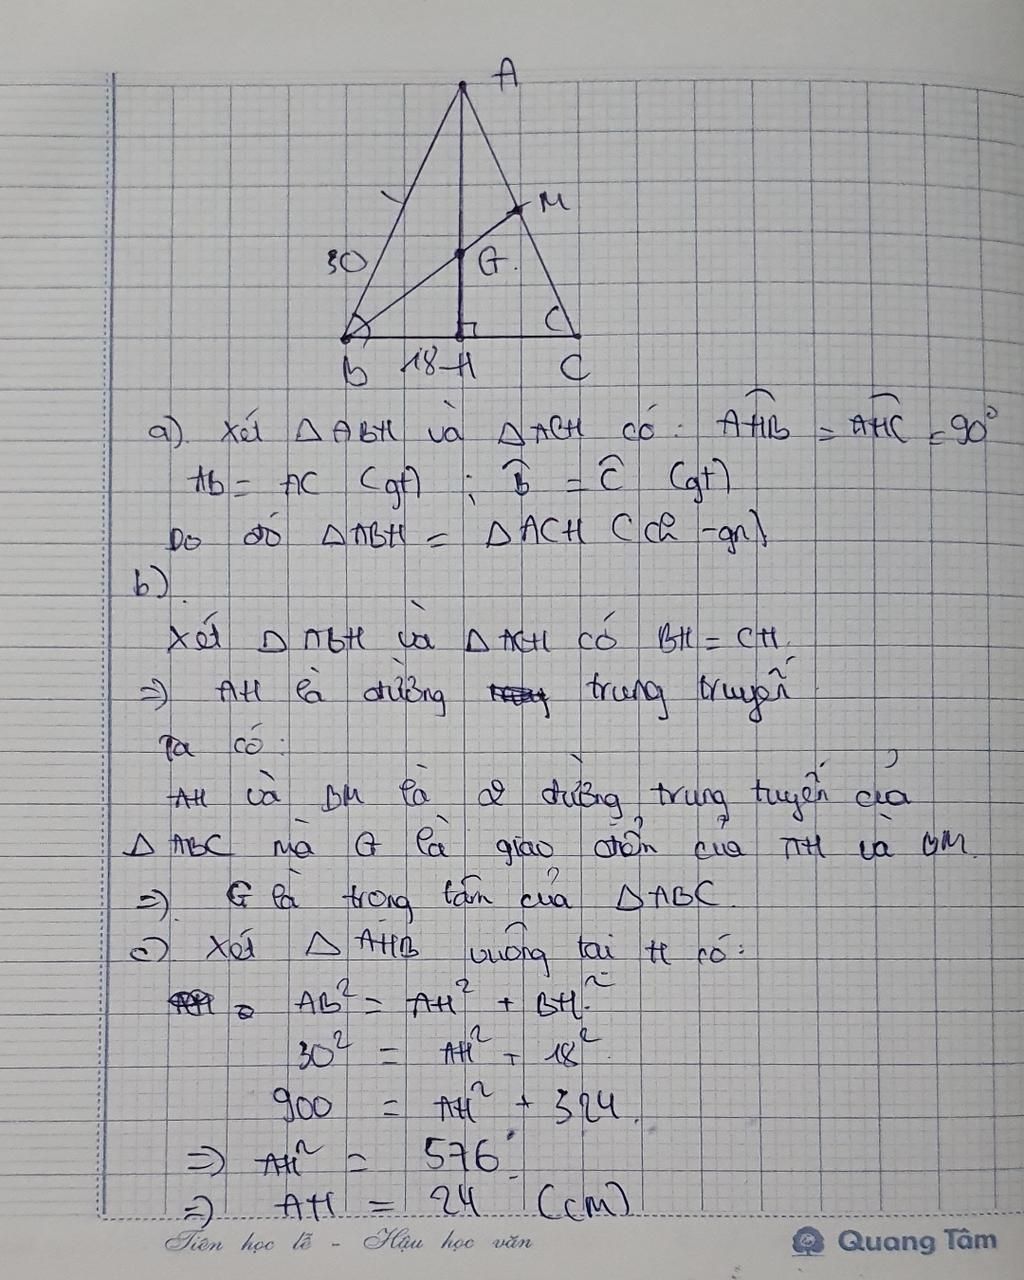 A
M
30
G.
B 18 H C
a). Xét Δ ABH và Δ ACH có: AHB = AHC = 90°
AB = AC (gt) ; B = C (gt)
Do đó ΔABH = ΔACH (ch - gn)
b)
Xét Δ ABH và Δ ACH có BH = CH.
=) AH là đường trung truyến
Ta có:
AH và BM là 2 đường trung tuyến của
Δ ABC mà G là giao điểm của AH và BM.
=) G là trọng tâm của ΔABC.
c) Xét Δ AHB vuông tại H có:
AB² = AH² + BH²
30² = AH² + 18²
900 = AH² + 324.
=) AH² = 576
=) AH = 24 (cm)
Tiên học lễ - Hậu học văn Quang Tâm